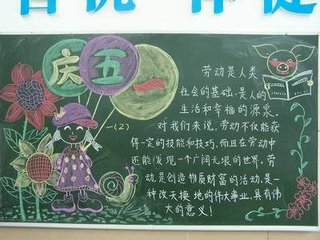 庆五一
一(2)
劳动是人类
社会的基础,是人的
生活和幸福的源泉。
对我们来说,劳动不仅能获
得一定的技能和技巧,而且在劳动中
还能发现一个广阔无垠的世界。劳
动是创造物质财富的活动,是一
种改天换地的伟大事业,具有伟
大的意义!